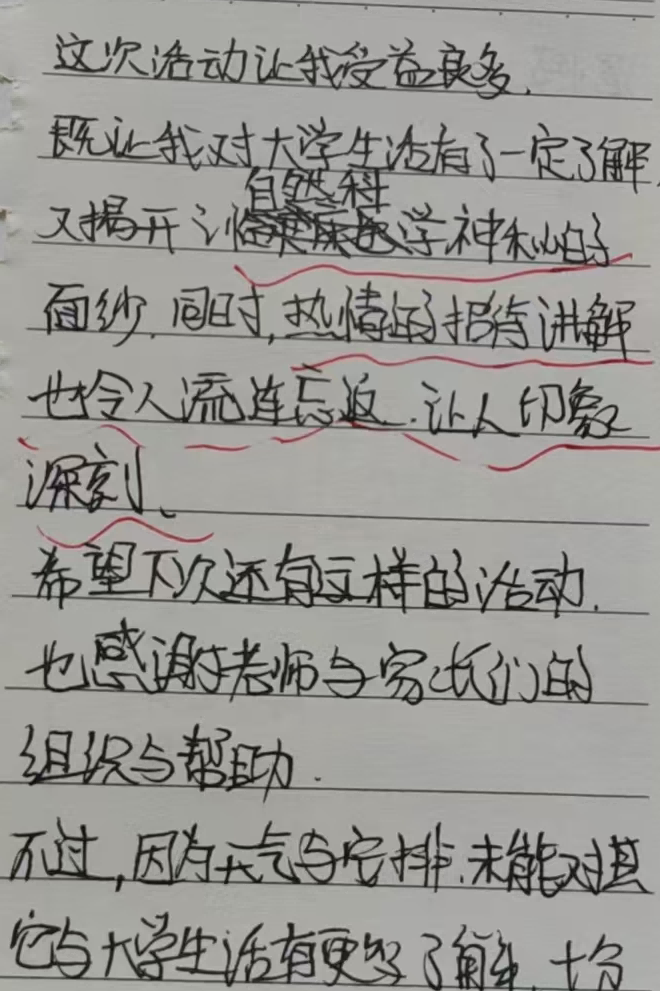 这次活动让我受益良多.
既让我对大学生活有了一定了解,
自然科
又揭开了学神秘的
面纱.同时,热情的招待讲解
也令人流连忘返.让人印象
深刻、
希望下次还有这样的活动.
也感谢老师与家长们的
组织与帮助.
不过,因为天气与安排.未能对其
它与大学生活有更多了解.十分